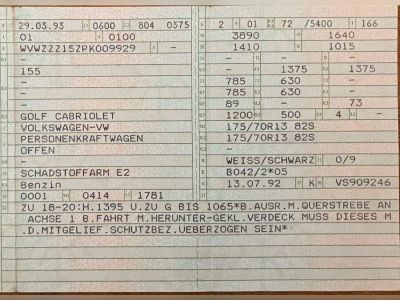 29.03.93 0600 804 0375
01 0100
WVWZZZ15ZPK009929 -
-
155
-
-
-
GOLF CABRIOLET
VOLKSWAGEN-VW
PERSONENKRAFTWAGEN
OFFEN
-
SCHADSTOFFARM E2
Benzin
0001 0414 1781
2 01 72 /5400 166
3890 1640
1410 1015
- - -
- 1375 1375
785 630 -
785 630 -
89 - 73
1200 500 4 -
175/70R13 82S
175/70R13 82S
-
-
WEISS/SCHWARZ 0/9
B042/2*05
13.07.92 K VS909246
ZU 18-20:H.1395 U.ZU G BIS 1065*B.AUSR.M.QUERSTREBE AN
ACHSE 1 B.FAHRT M.HERUNTER-GEKL.VERDECK MUSS DIESES M
.D.MITGELIEF.SCHUTZBEZ.UEBERZOGEN SEIN*